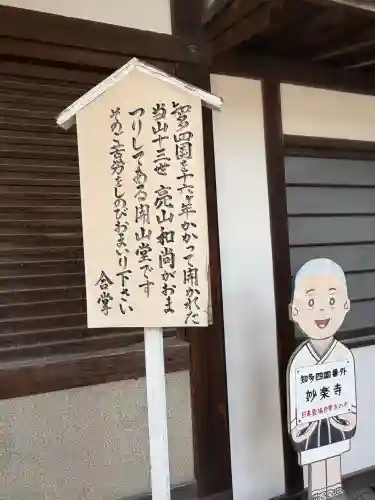 知多四国を十六ヶ年かかって開かれた
当山十三世 亮山和尚がおま
つりしてある開山堂です
そのご苦労をしのびおまいり下さい
合掌
知多四国番外
妙楽寺